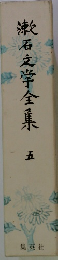 漱石文学全集
五
集英社